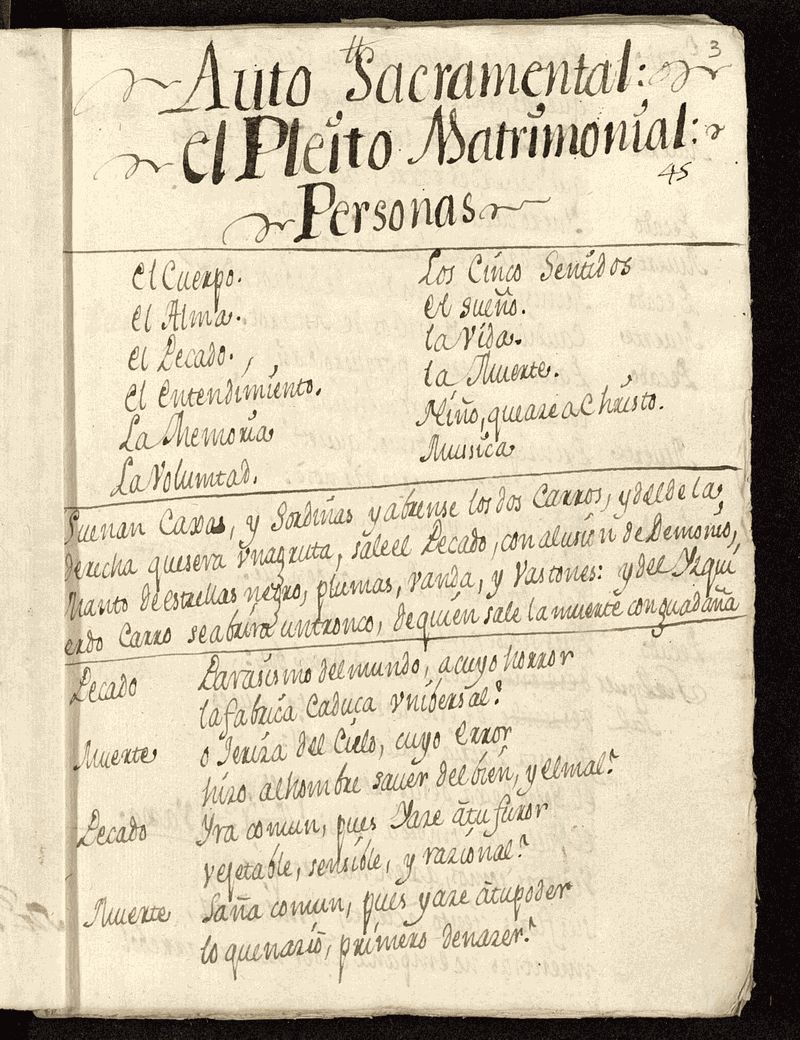 3
Auto Sacramental:
el Pleito Matrimonial:
45
Personas
el Cuerpo.
el Alma.
el Pecado.
el entendimiento.
La Memoria
La Volumtad.
Los Cinco Sentidos
el sueño.
la Vida.
la Muerte.
Niño, que aze a Christo.
Mussica
Suenan Caxas, y Sordinas y abrense los dos Carros, y del de la
derecha que sera vna gruta, sale el Pecado, con alusion de Demonio,
Manto de estrellas negro, plumas, vanda, y Vastones: y del Yzqui
erdo Carro se abrirà un tronco, de quién sale la muerte con guadaña
Pecado Parasismo del mundo, a cuyo horror
la fabrica Caduca vnibersal?
Muerte o Jeriza del Cielo, cuyo error
hizo al hombre saver del bien, y el mal?
Pecado Yra comun, pues Yaze à tu furor
vejetable, sensible, y razional?
Muerte Saña comun, pues yaze à tu poder
lo que naziò, primero de nazer?